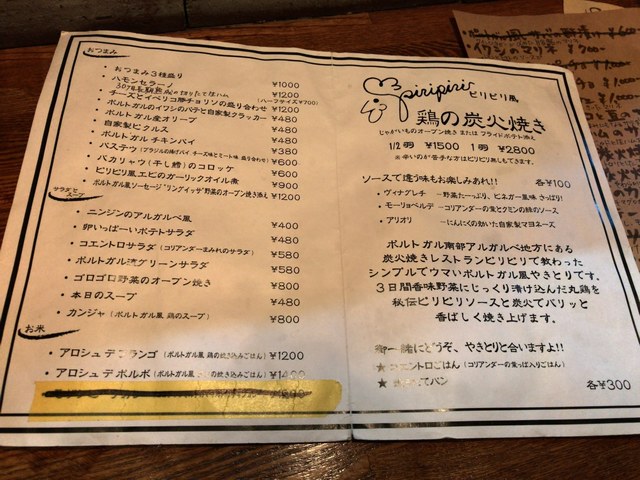 おつまみ
・おつまみ3種盛り ¥1000
・ハモンセラーノ ¥1200
(ハーフサイズ¥700)
・チーズとイベリコ豚チョリソの盛り合わせ ¥1200
・ポルトガルのイワシのパテと自家製クラッカー ¥480
・ポルトガル産オリーブ ¥480
・自家製ピクルス ¥480
・ポルトガル チキンパイ ¥480
・パステウ(ブラジルの揚げパイ、チーズ味とミート味 盛り合わせ) ¥600
・バカリャウ(干し鱈)のコロッケ ¥600
・ピリピリ風エビのガーリックオイル煮 ¥900
・ポルトガル風ソーセージ"リングイッサ"野菜のオープン焼き添え ¥1200
サラダとスープ
・ニンジンのアルガルベ風 ¥400
・卵いっぱーいポテトサラダ ¥480
・コエントロサラダ(コリアンダーまみれのサラダ) ¥580
・ポルトガル流グリーンサラダ ¥580
・ゴロゴロ野菜のオープン焼き ¥800
・本日のスープ ¥480
・カンジャ(ポルトガル風 鶏のスープ) ¥800
お米
・アロシュ デ フランゴ(ポルトガル風 鶏の炊き込みごはん) ¥1200
・アロシュ デ ポルボ(ポルトガル風 の炊き込みごはん) ¥1400
piripiri
ピリピリ風
鶏の炭火焼き
じゃがいものオープン焼き または フライドポテト添え
1/2羽 ¥1500 1羽 ¥2800
※辛いのが苦手な方はピリピリ無しもできます。
ソースで違う味もお楽しみあれ!! 各¥100
・ヴィナグレチ ―野菜たーっぷり、ビネガー風味 さっぱり!
・モーリョベルデ ―コリアンダーの葉とクミンの緑のソース
・アリオリ ―にんにくの効いた自家製マヨネーズ
ポルトガル南部アルガルベ地方にある
炭火焼きレストランピリピリで教わった
シンプルでウマいポルトガル風やきとりです。
3日間香味野菜にじっくり漬け込んだ丸鶏を
秘伝ピリピリソースと炭火でパリッと
香ばしく焼き上げます。
御一緒にどうぞ、やきとりと合いますよ!!
★コエントロごはん(コリアンダーの葉っぱ入りごはん)
★ てパン
各¥300